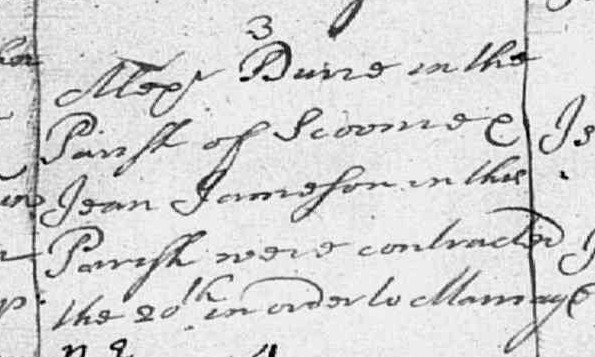 3
Alexr Dune in the
Parish of Scoone &
Jean Jameson in this
Parish were contracted
the 20th in order to Marriage